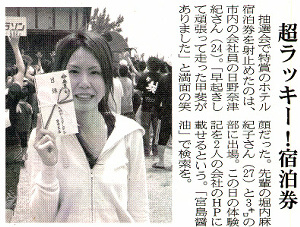 超ラッキー！宿泊券
抽選会で特賞のホテル
宿泊券を射止めたのは、
市内の会社員の日野奈津
紀さん（24）。「早起きし
て頑張って走った甲斐が
ありました」と満面の笑
顔だった。先輩の堀内麻
紀子さん（27）と3㌔の
部に出場。この日の体験
記を2人の会社のHPに
載せるという。「宮島醤
油」で検索を。